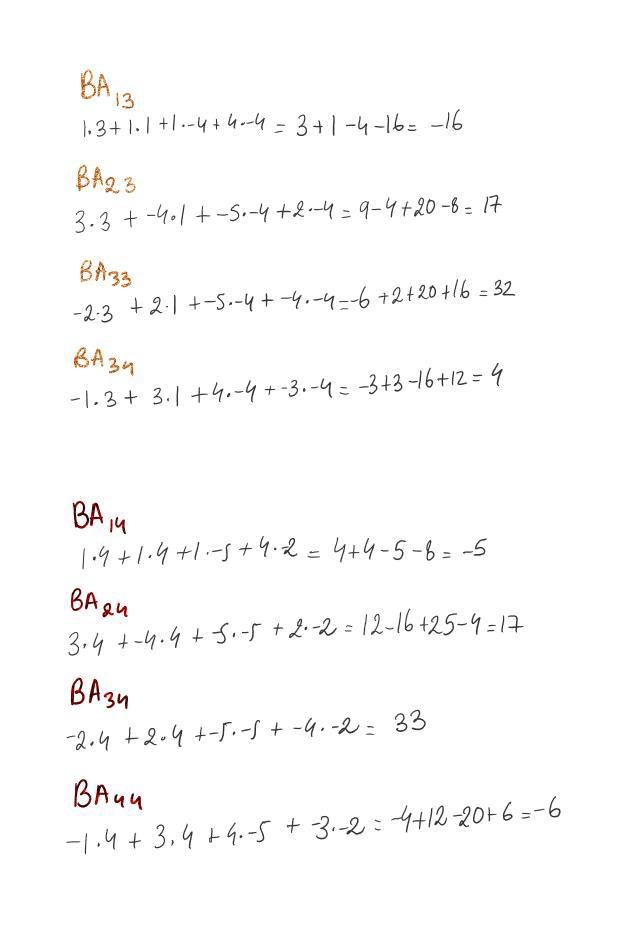 BA13
1·3+1·1+1·-4+4·-4 = 3+1-4-16 = -16
BA23
3·3 + -4·1 + -5·-4 + 2·-4 = 9-4+20-8 = 17
BA33
-2·3 + 2·1 + -5·-4 + -4·-4 = -6+2+20+16 = 32
BA34
-1·3 + 3·1 + 4·-4 + -3·-4 = -3+3-16+12 = 4
BA14
1·4+1·4+1·-5+4·-2 = 4+4-5-8 = -5
BA24
3·4 + -4·4 + -5·-5 + 2·-2 = 12-16+25-4 = 17
BA34
-2·4 + 2·4 + -5·-5 + -4·-2 = 33
BA44
-1·4 + 3·4 + 4·-5 + -3·-2 = -4+12-20+6 = -6